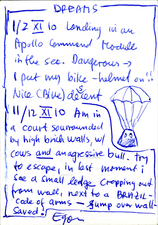 DREAMS
1/2 XI 10 Landing in an
Apollo Command Module
in the see. Dangerous →
I put my bike-helmet on!!
Nice (Bike) descent
11/12 XI 10 Am in
a court sourrounded
by high brich walls, w/
cows and an agressive bull. try
to escape, in last moment i
see a small ledge cropping out
from wall, next to a BRAZIL-
code of arms - jump over wall-
saved!